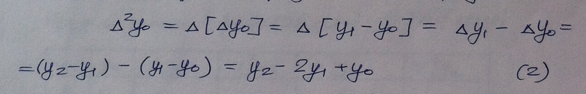 Δ²y₀ = Δ[Δy₀] = Δ[y₁-y₀] = Δy₁ - Δy₀ =
=(y₂-y₁) - (y₁-y₀) = y₂ - 2y₁ + y₀ (2)